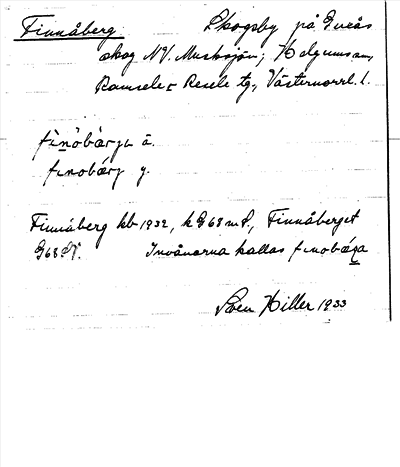 Finnåberg Skogsby på Greås
skog NV. Musksjön; Helgums sn,
Ramsele o Resele tg, Västernorrl. l.
fìnòbàrjı ä.
fınobárj y.
Finnåberg kb 1932, k G68 m.fl., Finnåberget
G68 N. Invånarna kallas fınobága
Sven Hiller 1933